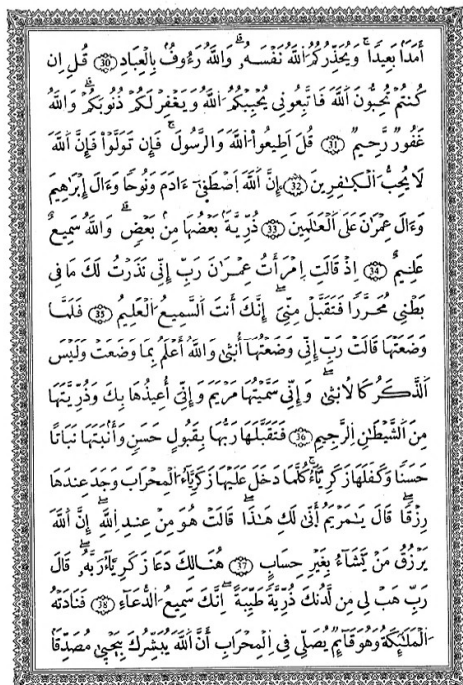 أَمَدًۢا بَعِيدًا ۗ وَيُحَذِّرُكُمُ ٱللَّهُ نَفْسَهُۥ ۗ وَٱللَّهُ رَءُوفٌۢ بِٱلْعِبَادِ (30) قُلْ إِن
كُنتُمْ تُحِبُّونَ ٱللَّهَ فَٱتَّبِعُونِى يُحْبِبْكُمُ ٱللَّهُ وَيَغْفِرْ لَكُمْ ذُنُوبَكُمْ ۗ وَٱللَّهُ
غَفُورٌ رَّحِيمٌ (31) قُلْ أَطِيعُوا۟ ٱللَّهَ وَٱلرَّسُولَ ۖ فَإِن تَوَلَّوْا۟ فَإِنَّ ٱللَّهَ
لَا يُحِبُّ ٱلْكَٰفِرِينَ (32) إِنَّ ٱللَّهَ ٱصْطَفَىٰٓ ءَادَمَ وَنُوحًا وَءَالَ إِبْرَٰهِيمَ
وَءَالَ عِمْرَٰنَ عَلَى ٱلْعَٰلَمِينَ (33) ذُرِّيَّةًۢ بَعْضُهَا مِنۢ بَعْضٍ ۗ وَٱللَّهُ سَمِيعٌ
عَلِيمٌ (34) إِذْ قَالَتِ ٱمْرَأَتُ عِمْرَٰنَ رَبِّ إِنِّى نَذَرْتُ لَكَ مَا فِى
بَطْنِى مُحَرَّرًا فَتَقَبَّلْ مِنِّىٓ ۖ إِنَّكَ أَنتَ ٱلسَّمِيعُ ٱلْعَلِيمُ (35) فَلَمَّا
وَضَعَتْهَا قَالَتْ رَبِّ إِنِّى وَضَعْتُهَآ أُنثَىٰ وَٱللَّهُ أَعْلَمُ بِمَا وَضَعَتْ وَلَيْسَ
ٱلذَّكَرُ كَٱلْأُنثَىٰ ۖ وَإِنِّى سَمَّيْتُهَا مَرْيَمَ وَإِنِّىٓ أُعِيذُهَا بِكَ وَذُرِّيَّتَهَا
مِنَ ٱلشَّيْطَٰنِ ٱلرَّجِيمِ (36) فَتَقَبَّلَهَا رَبُّهَا بِقَبُولٍ حَسَنٍ وَأَنۢبَتَهَا نَبَاتًا
حَسَنًا وَكَفَّلَهَا زَكَرِيَّآءَ ۖ كُلَّمَا دَخَلَ عَلَيْهَا زَكَرِيَّآءُ ٱلْمِحْرَابَ وَجَدَ عِندَهَا
رِزْقًا ۖ قَالَ يَٰمَرْيَمُ أَنَّىٰ لَكِ هَٰذَا ۖ قَالَتْ هُوَ مِنْ عِندِ ٱللَّهِ ۖ إِنَّ ٱللَّهَ
يَرْزُقُ مَن يَشَآءُ بِغَيْرِ حِسَابٍ (37) هُنَالِكَ دَعَا زَكَرِيَّآءُ رَبَّهُۥ ۖ قَالَ
رَبِّ هَبْ لِى مِن لَّدُنكَ ذُرِّيَّةً طَيِّبَةً ۖ إِنَّكَ سَمِيعُ ٱلدُّعَآءِ (38) فَنَادَتْهُ
ٱلْمَلَٰٓئِكَةُ وَهُوَ قَآئِمٌ يُصَلِّى فِى ٱلْمِحْرَابِ أَنَّ ٱللَّهَ يُبَشِّرُكَ بِيَحْيَىٰ مُصَدِّقًۢا